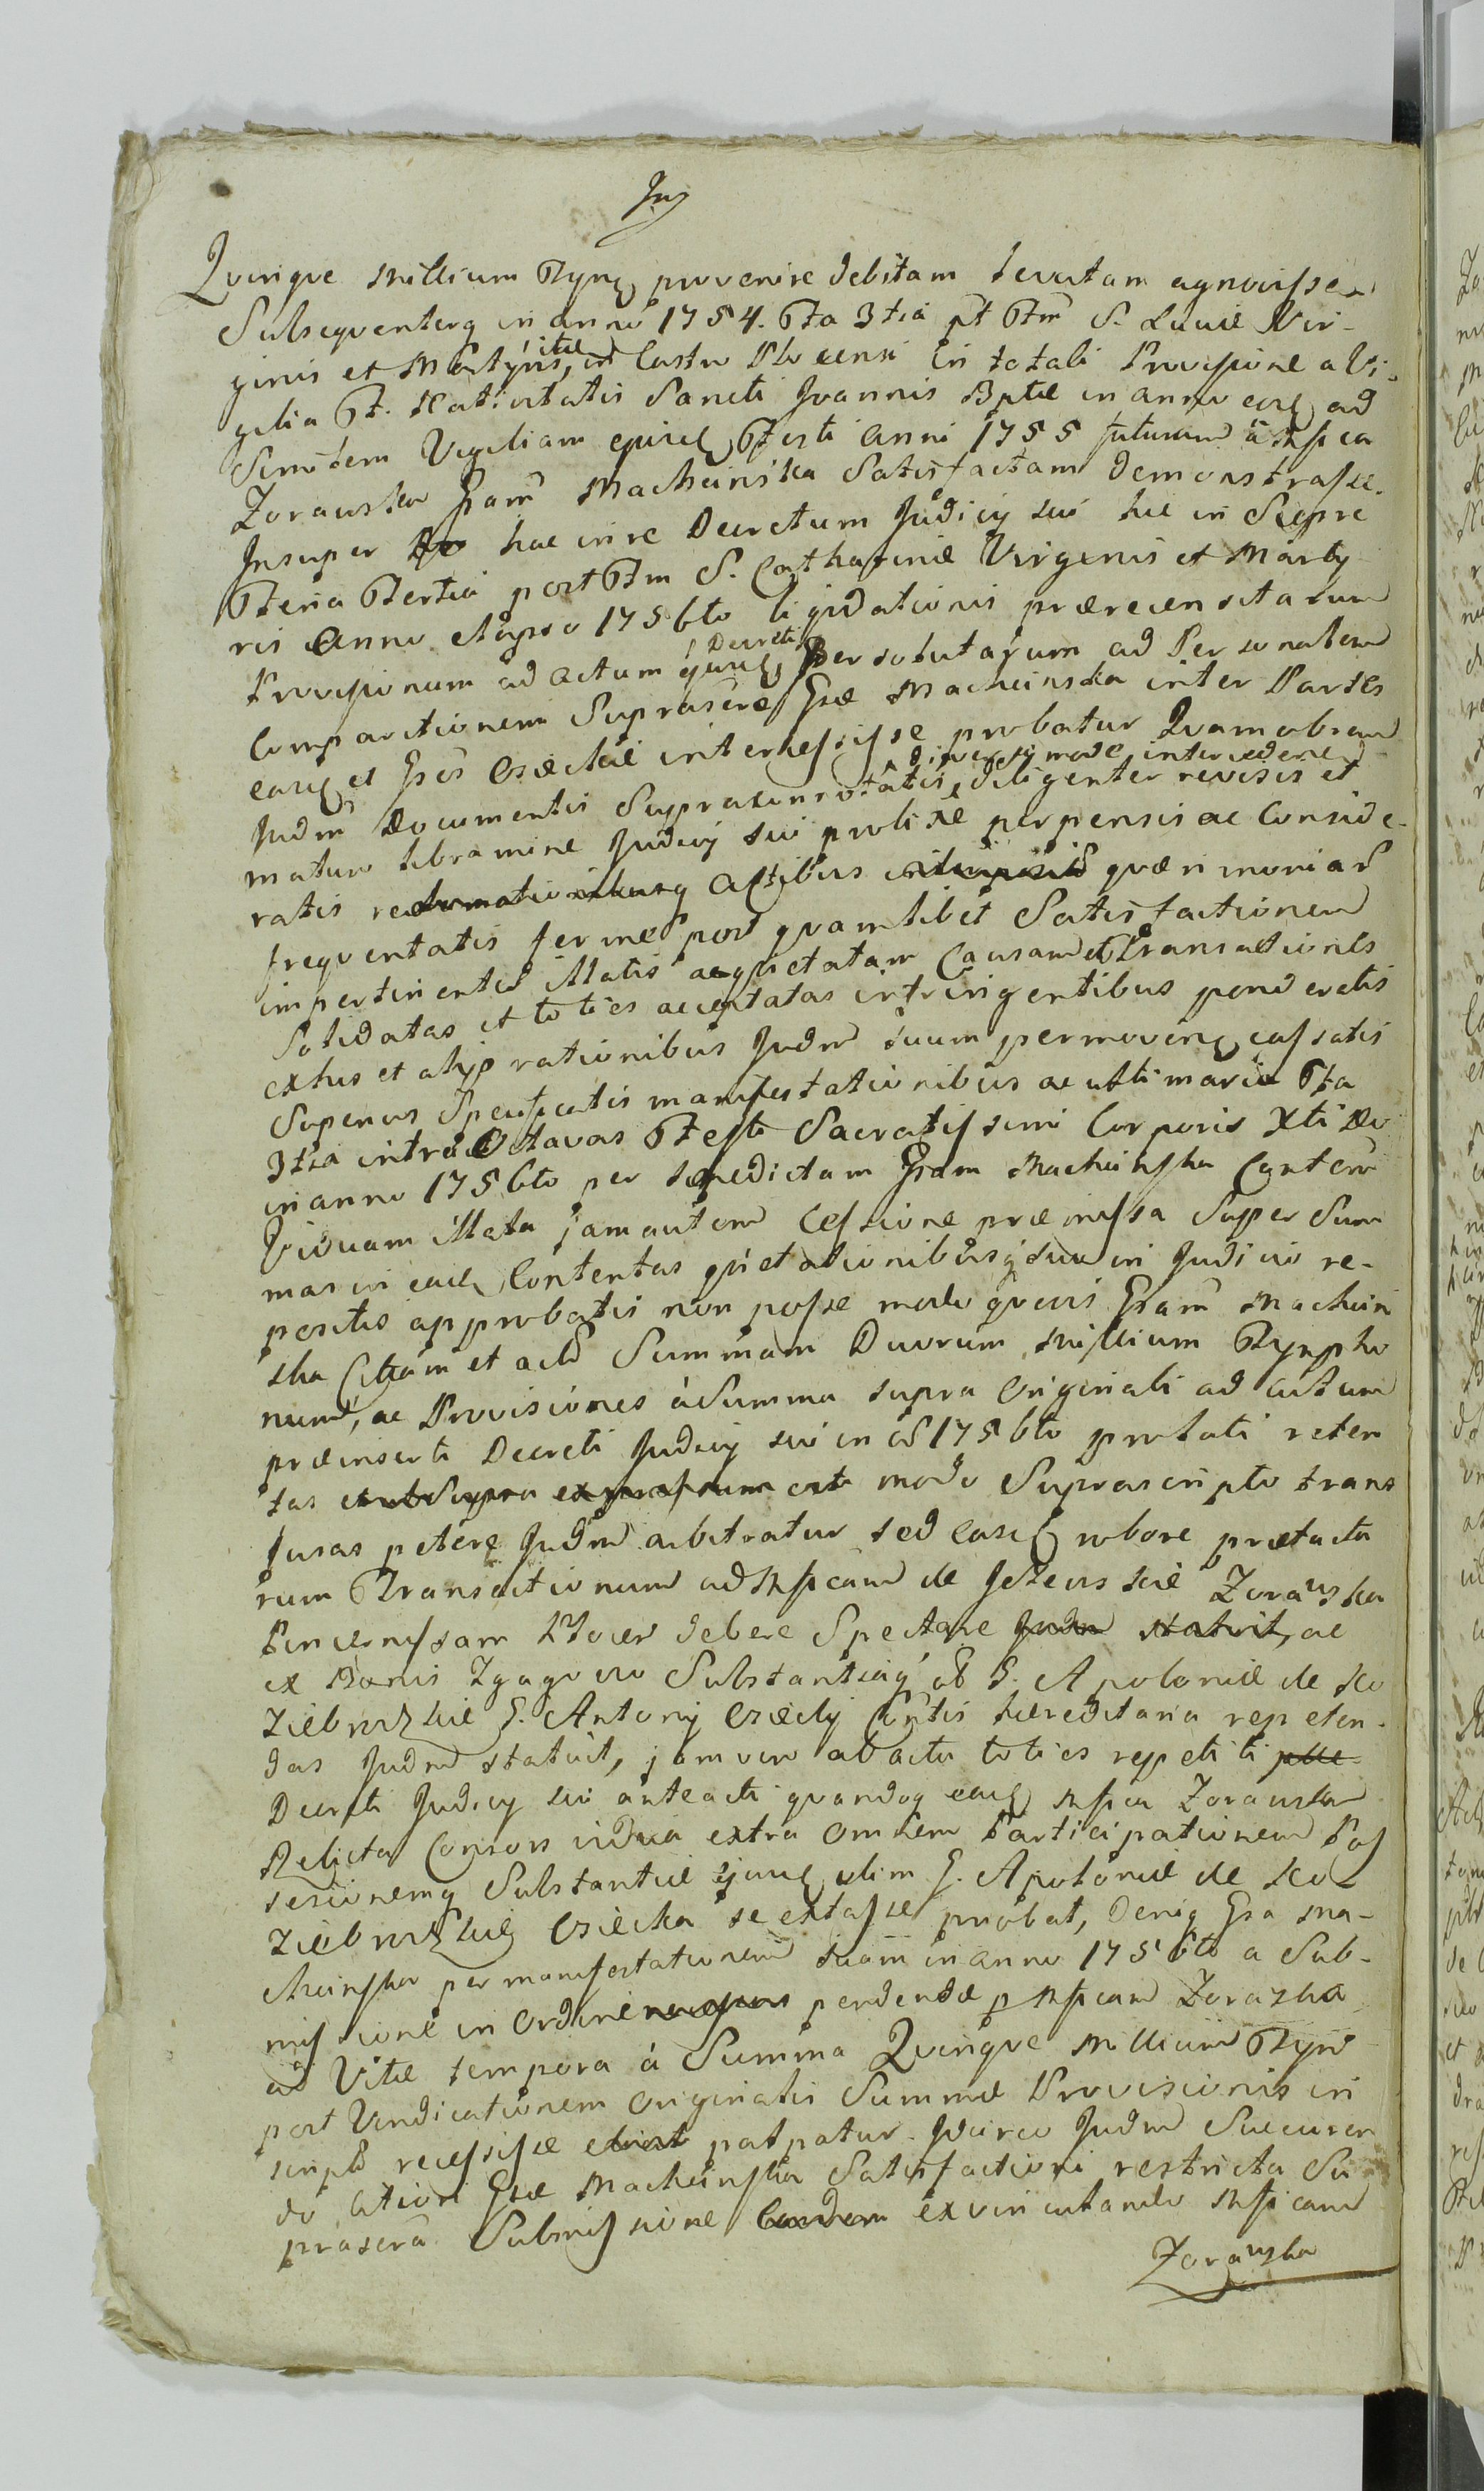 Quinque Millium Tynf provenire debitam levatam agnovisse
Subsequenterq in anno 1754. Fta 3tia pt Ftm S. Luciæ Vir-
ginis et Martyris, itid in Castro Plocensi in totali Provisione a Vi-
gilia Ft. Nativitatis Sancti Joannis Bptæ in anno eod ad
Similem Vigiliam ejusd Festi Anni 1755 futuram a Mfica
Zorawska Gsam Macheinska Satisfactam demonstrasse.
Insuper hac in re Decretum Judicy sui hic in Sieprc
Feria Tertia post Ftm S. Catharinæ Virginis et Marty
ris Anno elapso 1756to liqvidationis prærecensitarum
Provisionum ad actum ejusd Decreti Persolutarum ad Personalem
Comparitionem Suprascræ Gsæ Macheinska inter Partes
easd et Gsos Osieckie intercessisse probatur Quamobrem
Judm Documentis Supraconnotatis, diversimode intercedene diligenter revisis et
maturo libramine Judicy sui prolixe perpensis ac Conside-
ratis actibus quærimonias
freqventatis ferme post qvamlibet Satisfactionem
impertinenter illatis acqvietatam Causam et Transactiones
Solidatas et toties acceptatas infringentibus ponderatis
exhis et alijs rationibus Judm suum permoven cassatis
Superius Specificatis manifestationibus ac ultimaria Fta
3tia intra Octavas Festi Sacratissimi Corporis Xti Dei
in anno 1756to per Supradictam Gsam Macheinska Conten
Viduam illata jam autem Cessione præmissa Super Sum
mas in ead Contentas qvietationibusq suis in Judicio re-
positis approbatis non posse modo qvovis Gsam Machein
ska Citam et acto Summam Duorum Millium Tynpho
num, ac Provisiones a Summa supra Originali ad actum
præinserti Decreti Judicy sui in ao 1756to prolati reten
tas modo Suprascripto trans
fusas petere Judm arbitratur sed easd robore prætacta
rum Transactionum ad Mficam de Jezewskie Zorawska
Pincernissam debere Spectare ac
ex Bonis Zgagowo Substantiaq ob G. Apoloniæ de Ko
ziebrodzkie G. Antonij Osiecky Contis hæreditaria repeten-
das Judm statuit, jam vero ab actu toties repetiti
Decreti Judicy sui anteacti qvandoq ead Mfica Zorawska
Relicta Consors vidua extra omnem Participationem Pos
sesionemq Substantiæ ejusd olim G. Apoloniæ de Ko
ziebrodzkie Osiecka se extasse probat, deniq Gsa Ma-
cheinska per manifestationem suam in anno 1756to a Sub-
missione in Ordine pendendæ p Mficam Zorawska
ad Vitæ tempora a Summa Quinque Millium Tynf
post Vindicationem Originalis Summæ Provisionis in
scripto recessisse palpatur. Idcirco Judm Succuren
do actiori Gsæ Macheinska Satisfactioni restricta Su
prascra Submissione exvinculando Mficam
Zorawska